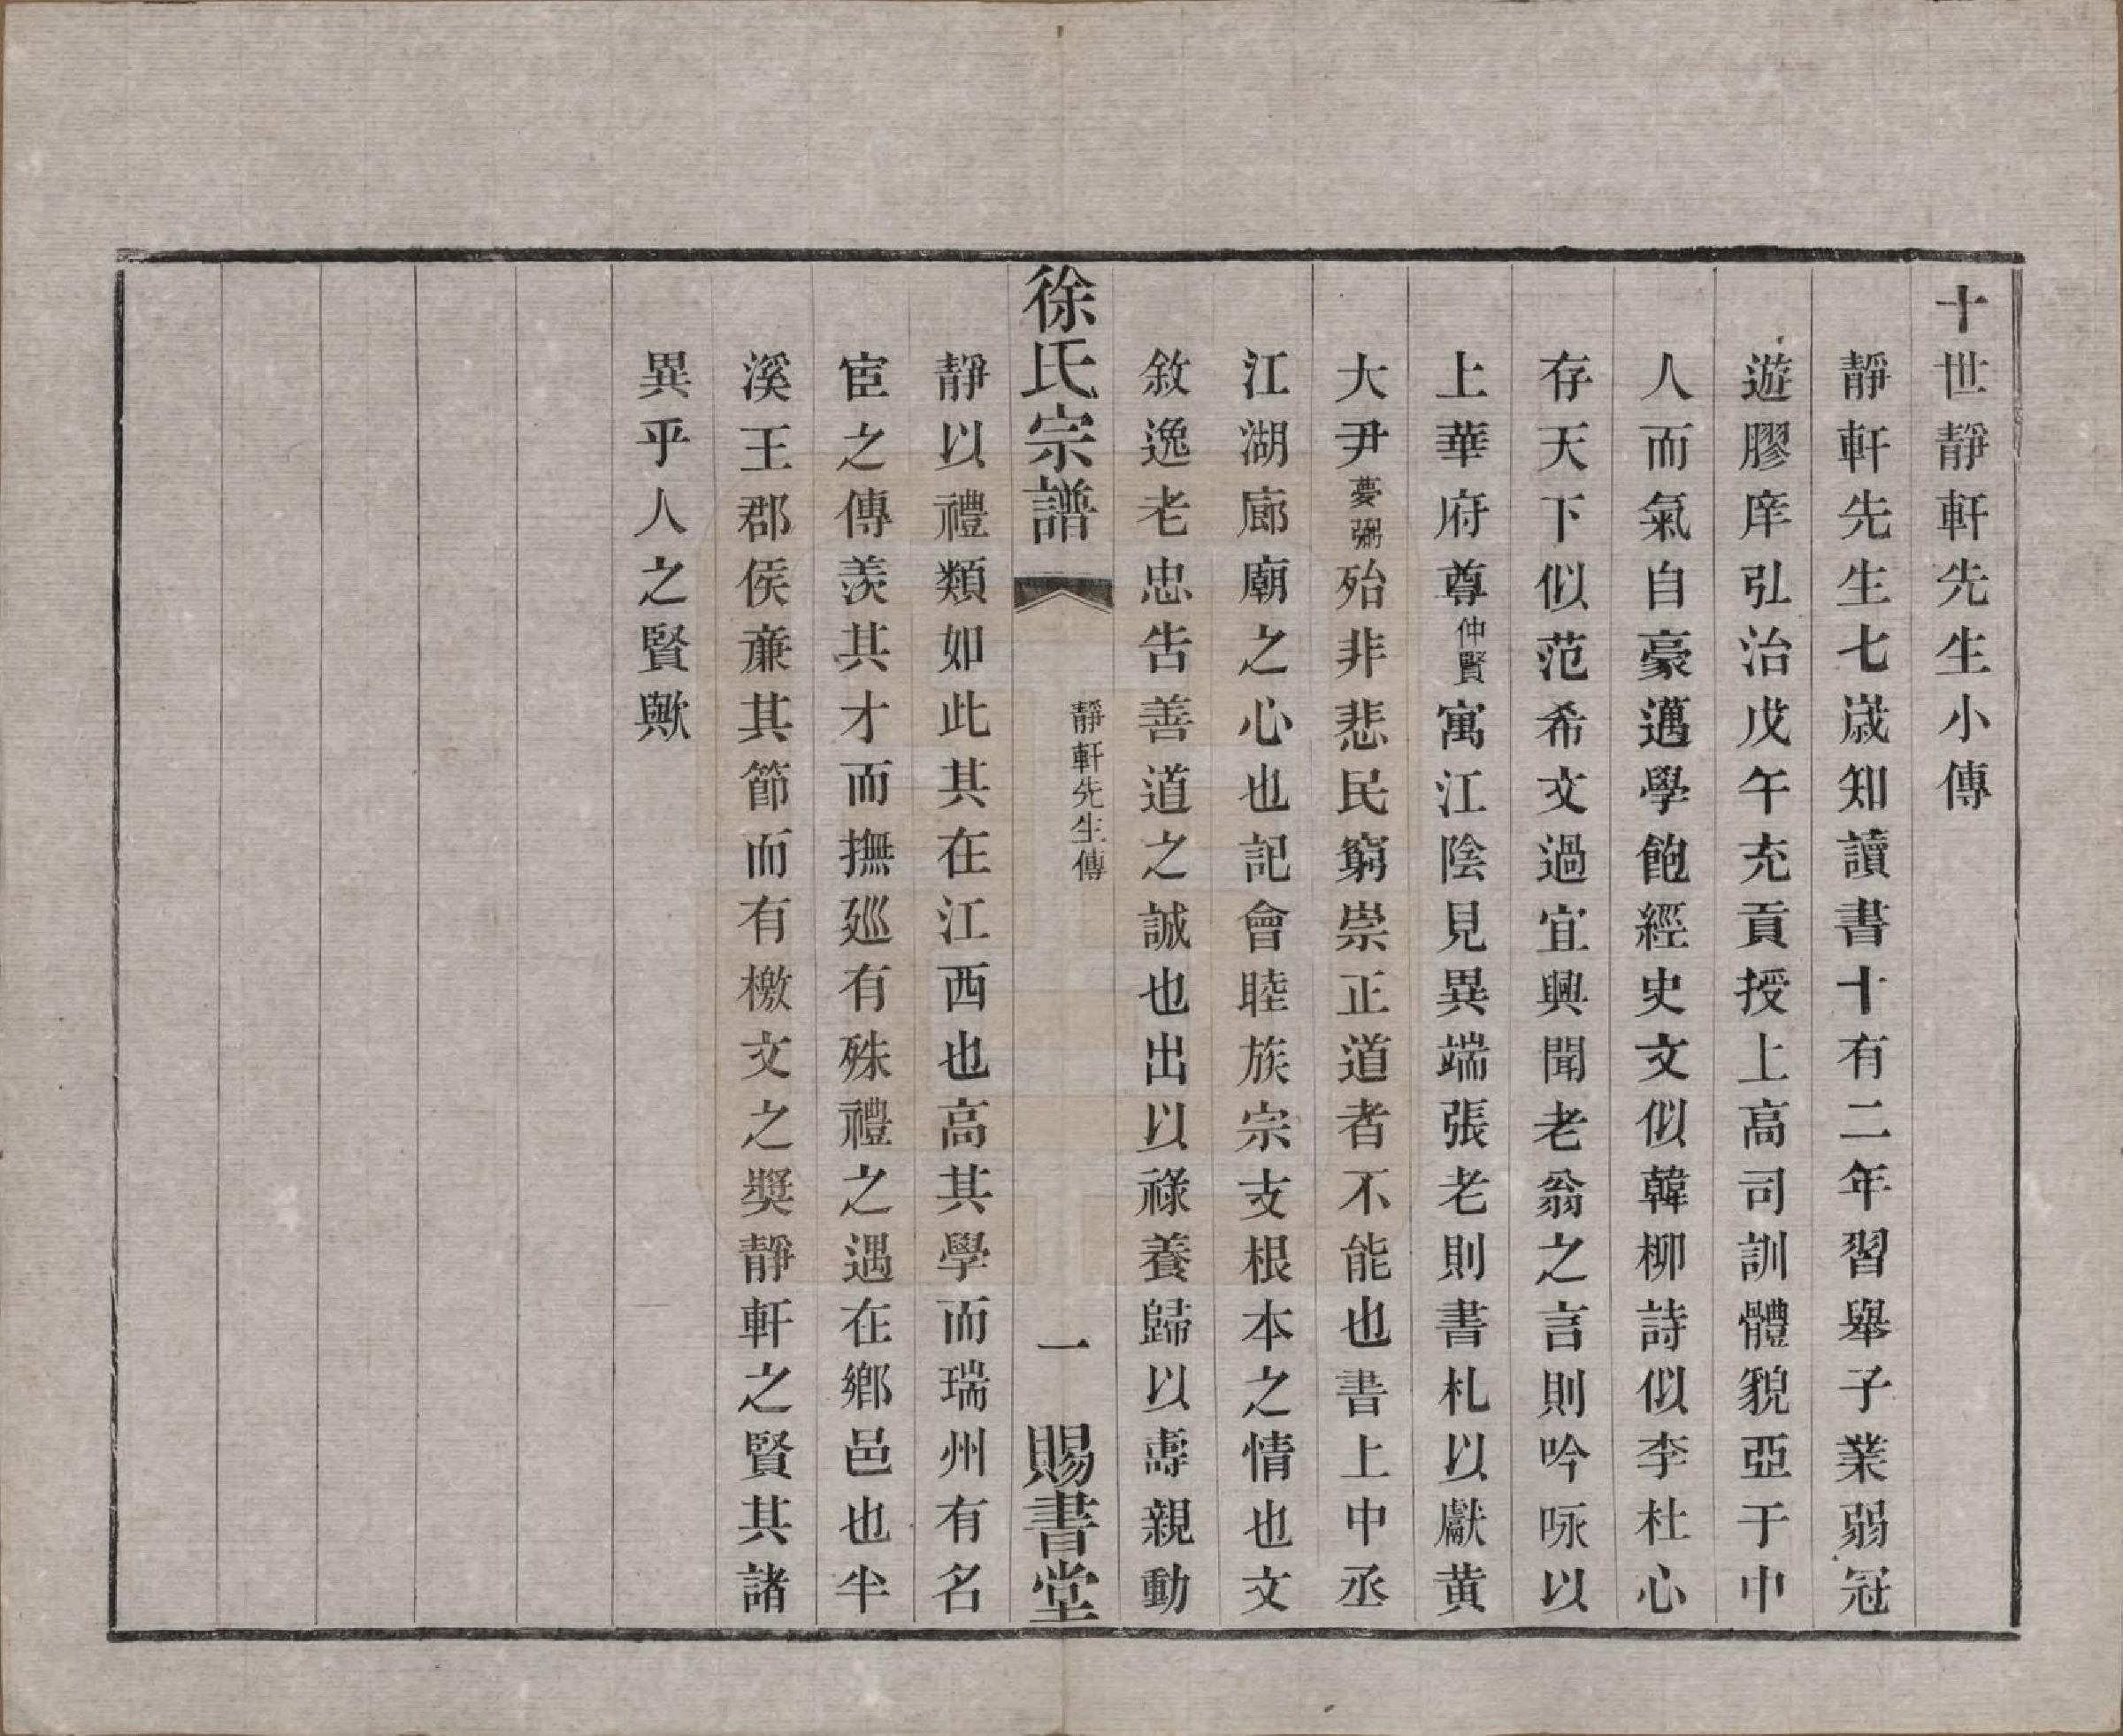 十世靜軒先生小傳
靜軒先生七歲知讀書十有二年習舉子業弱冠
遊膠庠弘治戊午充貢授上高司訓體貌亞于中
人而氣自豪邁學飽經史文似韓柳詩似李杜心
存天下似范希文過宜興聞老翁之言則吟咏以
上華府尊仲賢寓江陰見異端張老則書札以獻黄
大尹夢弼殆非悲民窮崇正道者不能也書上中丞
江湖廊廟之心也記會睦族宗支根本之情也文
敘逸老忠告善道之誠也出以祿養歸以壽親動
徐氏宗譜 靜軒先生傳 一 賜書堂
靜以禮類如此其在江西也高其學而瑞州有名
宦之傳羨其才而撫廵有殊禮之遇在鄉邑也半
溪王郡侯亷其節而有檄文之奬靜軒之賢其諸
異乎人之賢歟